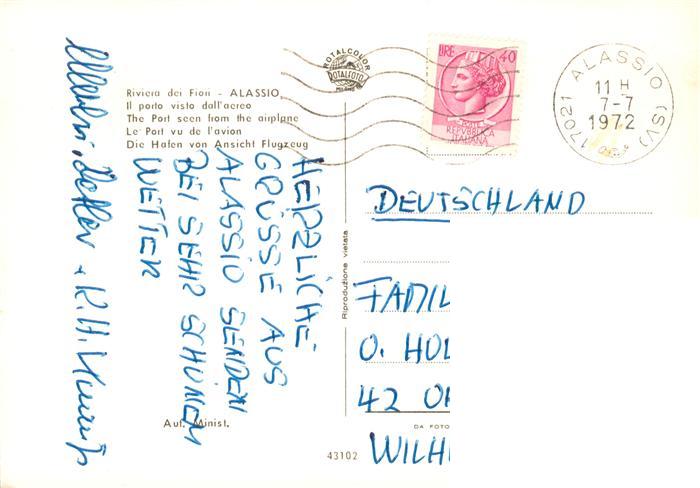 Riviera dei Fiori - ALASSIO
Il porto visto dall'aereo
The Port seen from the airplane
Le Port vu de l'avion
Die Hafen von Ansicht Flugzeug
ROTALCOLOR
ROTALFOTO
MILANO
LIRE 40
POSTE
REPVBBLICA
ITALIANA
17021 ALASSIO (SV)
11 H
7-7
1972
HERZLICHE
GRÜSSE AUS
ALASSIO SENDEN
BEI SEHR SCHÖNEM
WETTER
Detlev + K.H.
Riproduzione vietata
DEUTSCHLAND
FAMIL
O. HOL
42 OB
WILHE
Aut. Minist.
43102
DA FOTO